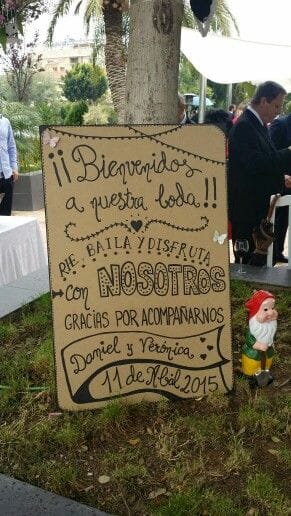 ¡¡Bienvenidos
a nuestra boda!!
RIE, BAILA Y DISFRUTA
con NOSOTROS
GRACIAS POR ACOMPAÑARNOS
Daniel y Verónica
11 de Abril 2015